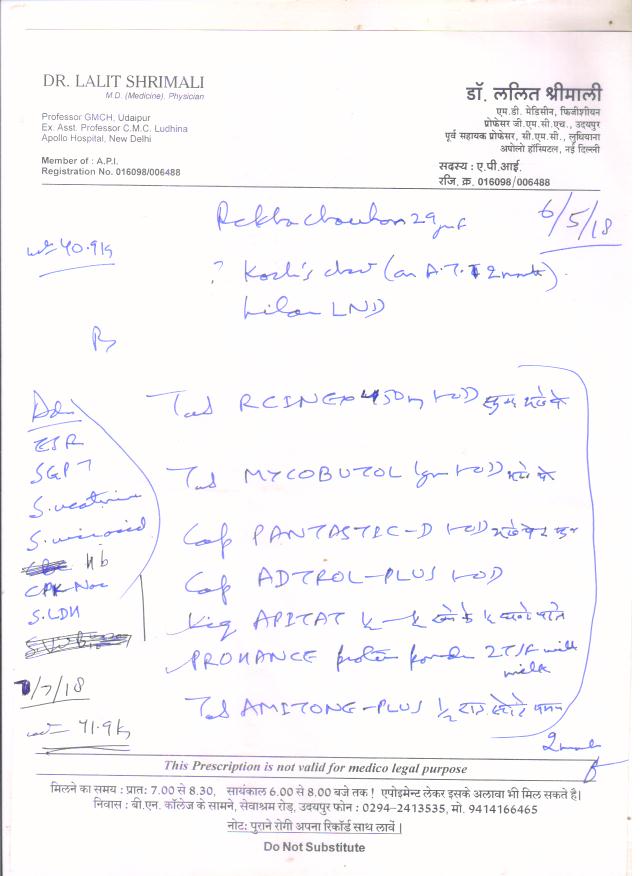 DR. LALIT SHRIMALI
M.D. (Medicine), Physician
Professor GMCH, Udaipur
Ex. Asst. Professor C.M.C. Ludhina
Apollo Hospital, New Delhi
Member of : A.P.I.
Registration No. 016098/006488
डॉ. ललित श्रीमाली
एम.डी. मेडिसीन, फिजीशीयन
प्रोफेसर जी.एम.सी.एच., उदयपुर
पूर्व सहायक प्रोफेसर, सी.एम.सी., लुधियाना
अपोलो हॉस्पिटल, नई दिल्ली
सदस्य : ए.पी.आई.
रजि. क्र. 016098/006488
6/5/18
29
wt= 40.9 kg
? Koch's (on A.T.T 2 month)
hilar LND
Rx
Adv
ESR
SGPT
S. creatinine
S. uric acid
Hb
CPK Nac
S. LDH
Tab RCINEX 450 mg 1 OD
Tab MYCOBUTOL 1 gm 1 OD
Cap PANTASTIC-D 1 OD
Cap ADTROL-PLUS 1 OD
APITAT
PROHANCE protein powder 2 TSF with milk
Tab AMITONE-PLUS 1/2
2 month
7/18
wt= 41.9 kg
This Prescription is not valid for medico legal purpose
मिलने का समय : प्रात: 7.00 से 8.30, सायंकाल 6.00 से 8.00 बजे तक ! एपोइमेन्ट लेकर इसके अलावा भी मिल सकते है।
निवास : बी.एन. कॉलेज के सामने, सेवाश्रम रोड़, उदयपुर फोन : 0294-2413535, मो. 9414166465
नोट: पुराने रोगी अपना रिकॉर्ड साथ लावें।
Do Not Substitute